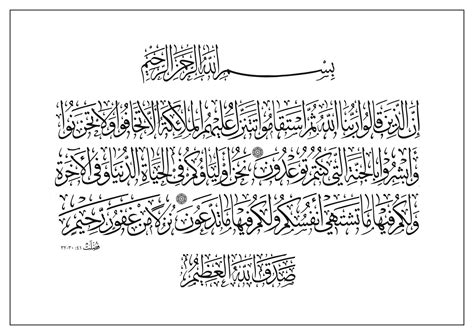 بسم الله الرحمن الرحيم
إن الذين قالوا ربنا الله ثم استقاموا تتنزل عليهم الملائكة ألا تخافوا ولا تحزنوا
وأبشروا بالجنة التي كنتم توعدون نحن أولياؤكم في الحياة الدنيا وفي الآخرة
ولكم فيها ما تشتهي أنفسكم ولكم فيها ما تدعون نزلا من غفور رحيم
فصلت ٤١:٣٠-٣٢
صدق الله العظيم